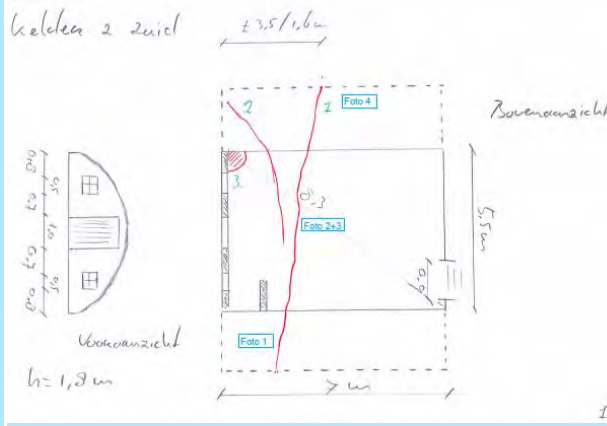 kelder 2 zuid
± 3,5/1,6m
2
1
Foto 4
Bovenaanzicht
3
0-3
Foto 2+3
5,5m
0,9
0,3
0,5
0,7
1,0
0,7
0,5
0,3
Vooraanzicht
Foto 1
h= 1,8m
7 m
1